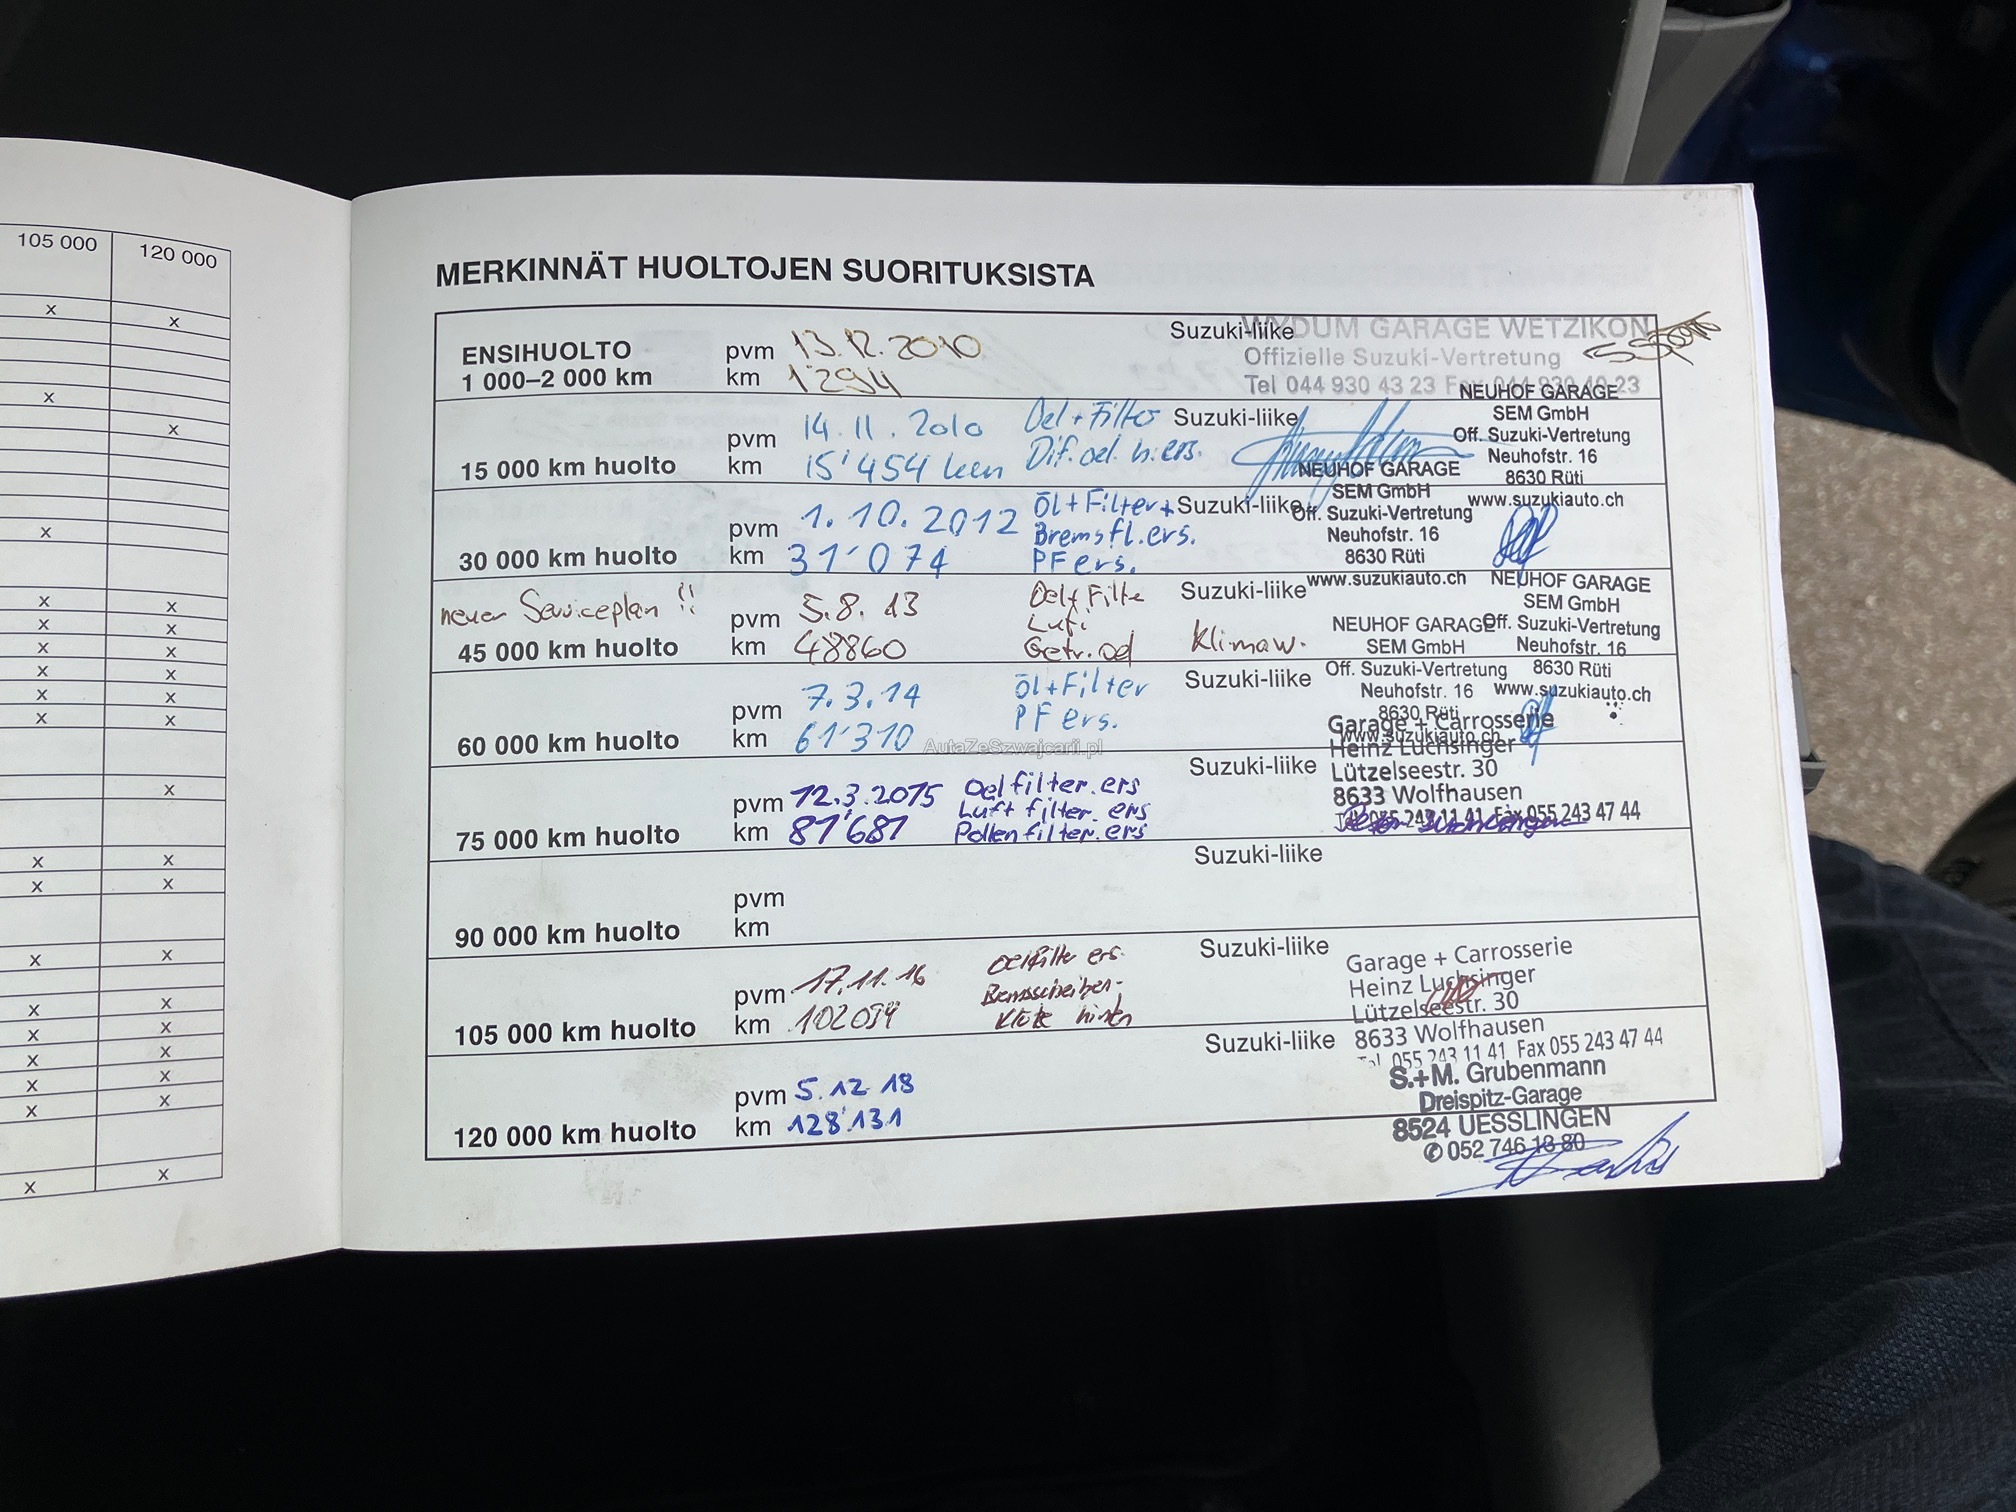 105 000
120 000
MERKINNÄT HUOLTOJEN SUORITUKSISTA
ENSIHUOLTO
1 000–2 000 km
pvm 13.12.2010
km 1'294
Suzuki-liike
WYDUM GARAGE WETZIKON
Offizielle Suzuki-Vertretung
Tel 044 930 43 23 Fax 044 930 40 23
15 000 km huolto
pvm 14.11.2010
km 15'454 km
Oel + Filter
Dif.oel h.ers.
Suzuki-liike
NEUHOF GARAGE
SEM GmbH
Off. Suzuki-Vertretung
Neuhofstr. 16
8630 Rüti
www.suzukiauto.ch
30 000 km huolto
pvm 1.10.2012
km 31'074
Öl + Filter +
Bremsfl.ers.
PF ers.
Suzuki-liike
NEUHOF GARAGE
SEM GmbH
Off. Suzuki-Vertretung
Neuhofstr. 16
8630 Rüti
www.suzukiauto.ch
neuer Serviceplan !!
45 000 km huolto
pvm 5.8.13
km 48860
Oel+Filte
Luft
Getr.oel
Klimaw.
Suzuki-liike
NEUHOF GARAGE
SEM GmbH
Off. Suzuki-Vertretung
Neuhofstr. 16
8630 Rüti
www.suzukiauto.ch
60 000 km huolto
pvm 7.3.14
km 61'310
Öl+Filter
PF ers.
Suzuki-liike
NEUHOF GARAGE
SEM GmbH
Off. Suzuki-Vertretung
Neuhofstr. 16
8630 Rüti
www.suzukiauto.ch
AutaZeSzwajcarii.pl
75 000 km huolto
pvm 12.3.2015
km 81'681
Oelfilter.ers
Luft filter.ers
Pollenfilter.ers
Suzuki-liike
Garage + Carrosserie
Heinz Luchsinger
Lützelseestr. 30
8633 Wolfhausen
Tel 055 243 11 41 Fax 055 243 47 44
90 000 km huolto
pvm
km
Suzuki-liike
105 000 km huolto
pvm 17.11.16
km 102094
Oelfilter ers.
Bremsscheiben-
Klötze hinten
Suzuki-liike
Garage + Carrosserie
Heinz Luchsinger
Lützelseestr. 30
8633 Wolfhausen
Tel 055 243 11 41 Fax 055 243 47 44
120 000 km huolto
pvm 5.12 18
km 128'131
Suzuki-liike
S.+M. Grubenmann
Dreispitz-Garage
8524 UESSLINGEN
✆ 052 746 13 80